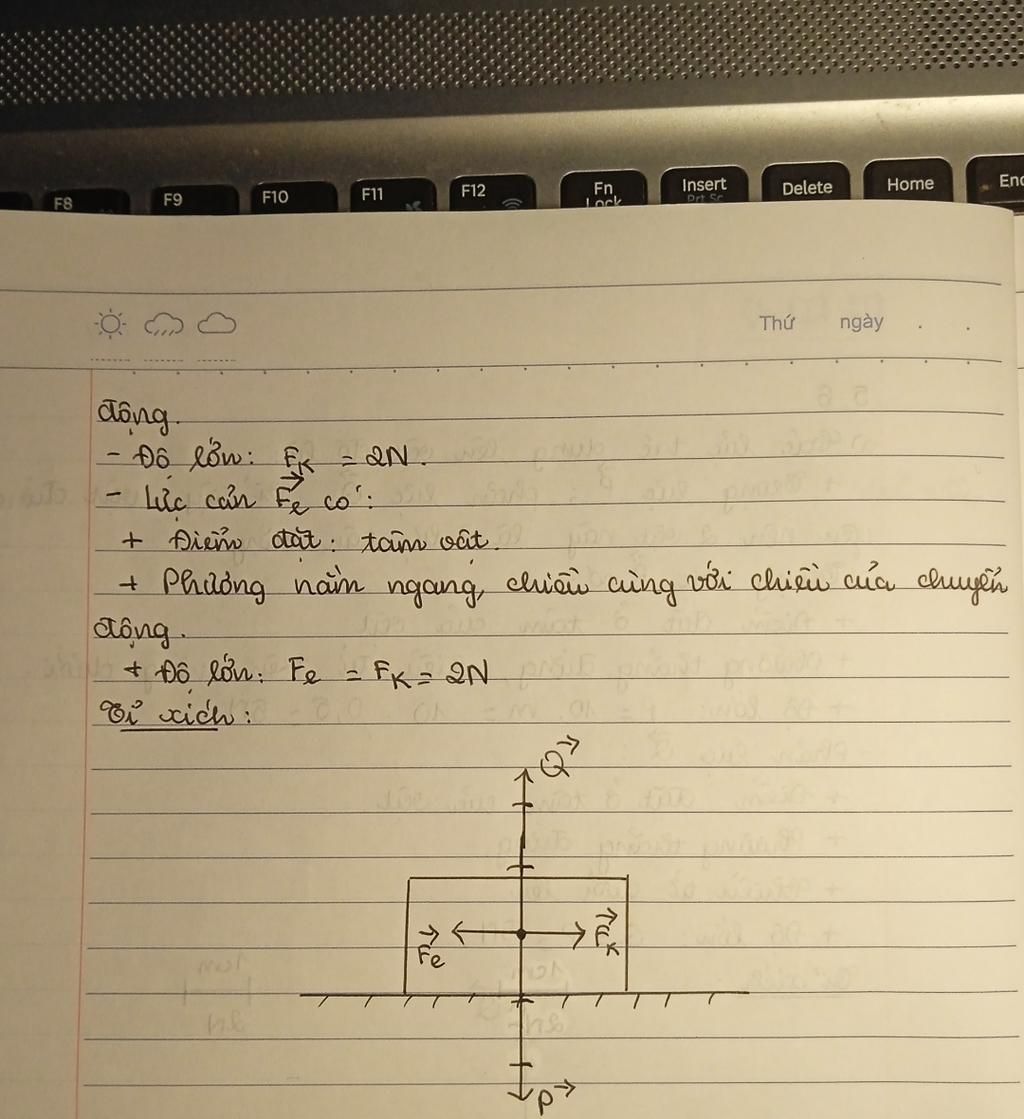 F8 F9 F10 F11 F12 Fn Lock Insert Prt Sc Delete Home End
Thứ ngày . .
động.
- Độ lớn: F_K = 2N.
- Lực cản F⃗_c có:
+ Điểm đặt: tâm vật.
+ Phương nằm ngang, chiều cùng với chiều của chuyển
động.
+ Độ lớn: F_c = F_K = 2N
Tỉ xích:
Q⃗
F⃗_c F⃗_K
P⃗